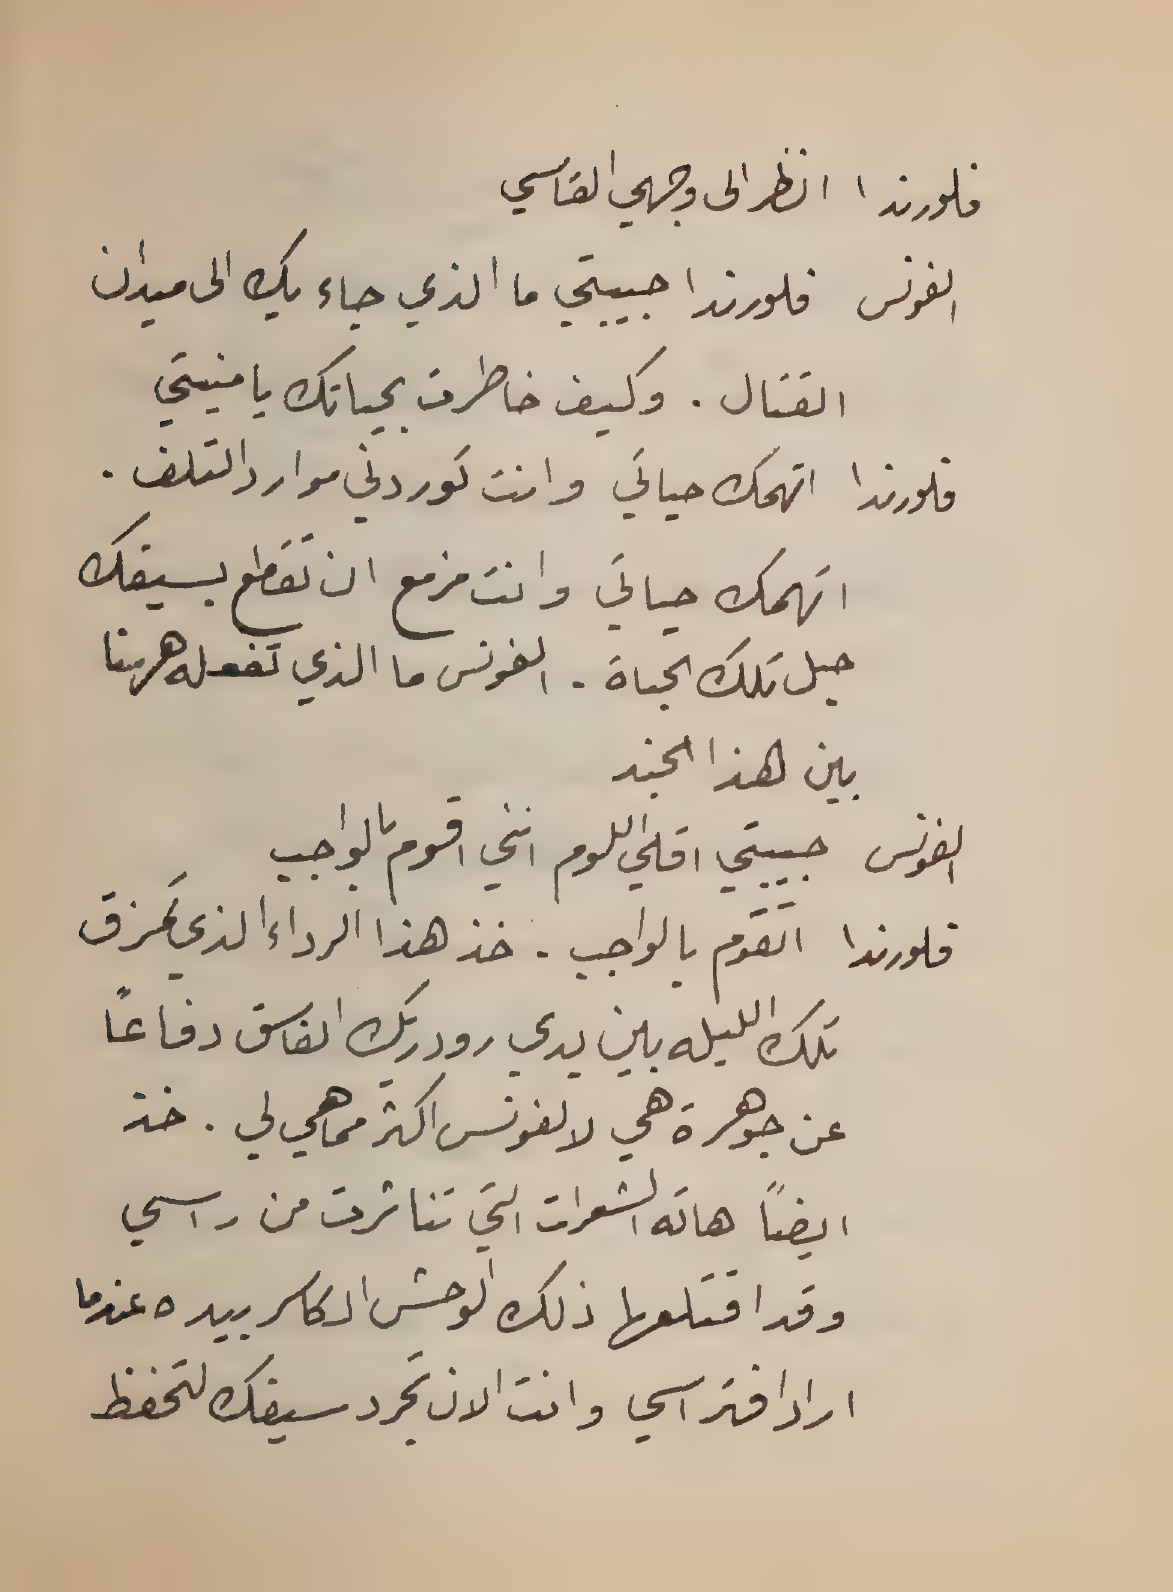 فلورندا انظر الى وجهي القاسي
الفونس فلورندا حبيبتي ما الذي جاء بك الى ميدان
القتال . وكيف خاطرت بحياتك يا منيتي
فلورندا اتهمك حياتي وانت توردني موارد التلف .
اتهمك حياتي وانت مزمع ان تقطع بسيفك
حبل تلك الحياة . الفونس ما الذي تفعله ههنا
بين هذا الجند
الفونس حبيبتي اقلي اللوم انني اقوم بالواجب
فلورندا اتقوم بالواجب . خذ هذا الرداء الذي تمزق
تلك الليله بين يدي رودريك الفاسق دفاعاً
عن جوهرة هي لالفونس اكثر مما هي لي . خذ
ايضاً هاته الشعرات التي تناثرت من راسي
وقد اقتلعها ذلك الوحش الكاسر بيده عندما
اراد افتراسي وانت الان تجرد سيفك لتحفظ